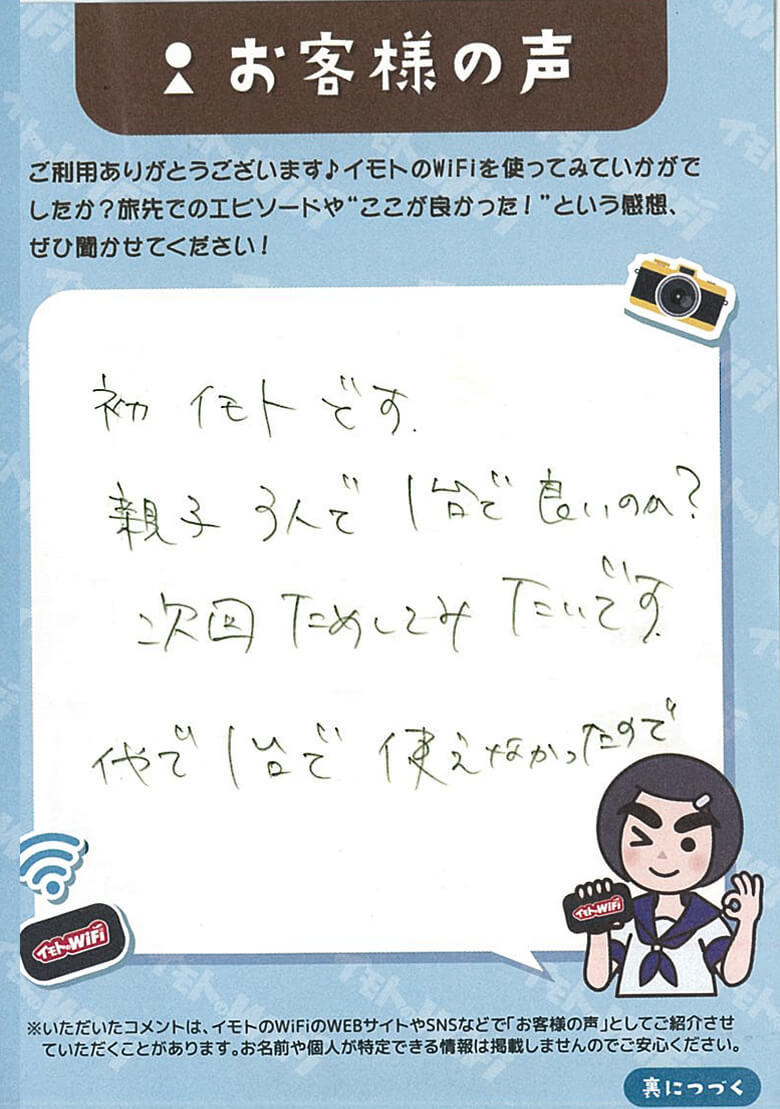 お客様の声
ご利用ありがとうございます♪イモトのWiFiを使ってみていかがで
したか？旅先でのエピソードや“ここが良かった！”という感想、
ぜひ聞かせてください！
初 イモトです.
親子3人で 1台で 良いのか?
次回 ためしてみたいです.
他で 1台で 使えなかったので
イモトのWiFi
イモトのWiFi
※いただいたコメントは、イモトのWiFiのWEBサイトやSNSなどで「お客様の声」としてご紹介させ
ていただくことがあります。お名前や個人が特定できる情報は掲載しませんのでご安心ください。
裏につづく